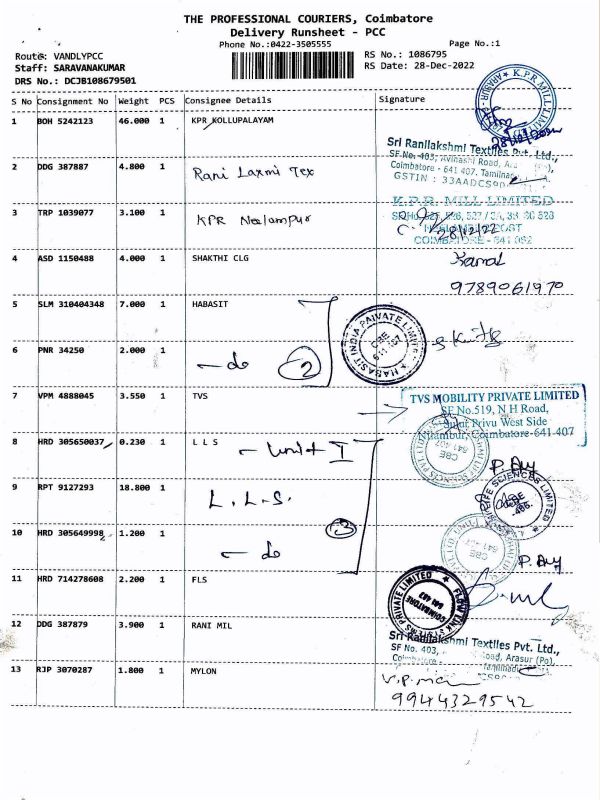 THE PROFESSIONAL COURIERS, Coimbatore
Delivery Runsheet - PCC
Phone No.:0422-3505555
Page No.:1
Route: VANDLYPCC
RS No.: 1086795
Staff: SARAVANAKUMAR
RS Date: 28-Dec-2022
DRS No.: DCJB108679501
S No Consignment No Weight PCS Consignee Details Signature
1 BOH 5242123 46.000 1 KPR KOLLUPALAYAM
K.P.R. MILL LIMITED
28/12/2022
Sri Ranilakshmi Textiles Pvt. Ltd.,
SF No. 403, Avinashi Road,
Coimbatore - 641 407. Tamilnadu
GSTIN : 33AADCS90
2 DDG 387887 4.800 1 Rani Laxmi Tex
3 TRP 1039077 3.100 1 KPR Neelampur
K.P.R. MILL LIMITED
28/12/22
COIMBATORE - 641 062
4 ASD 1150488 4.000 1 SHAKTHI CLG
9789061970
5 SLM 310404348 7.000 1 HABASIT
HABASIT INDIA PRIVATE LIMITED
CBE
641 407
6 PNR 34250 2.000 1 - do 2
7 VPM 4888045 3.550 1 TVS
TVS MOBILITY PRIVATE LIMITED
SF No.519, N H Road,
Privu West Side
Nilambur, Coimbatore-641-407
8 HRD 305650037 0.230 1 L L S - Unit I
CBE
641-407
9 RPT 9127293 18.800 1 L.L.S.
LIFE SCIENCES LIMITED
3
10 HRD 305649998 1.200 1 - do
641-407
11 HRD 714278608 2.200 1 FLS
PRIVATE LIMITED
COIMBATORE
641 407
12 DDG 387879 3.900 1 RANI MIL
Sri Ranilakshmi Textiles Pvt. Ltd.,
SF No. 403, Road, Arasur (Po),
13 RJP 3070287 1.800 1 MYLON
9944329542